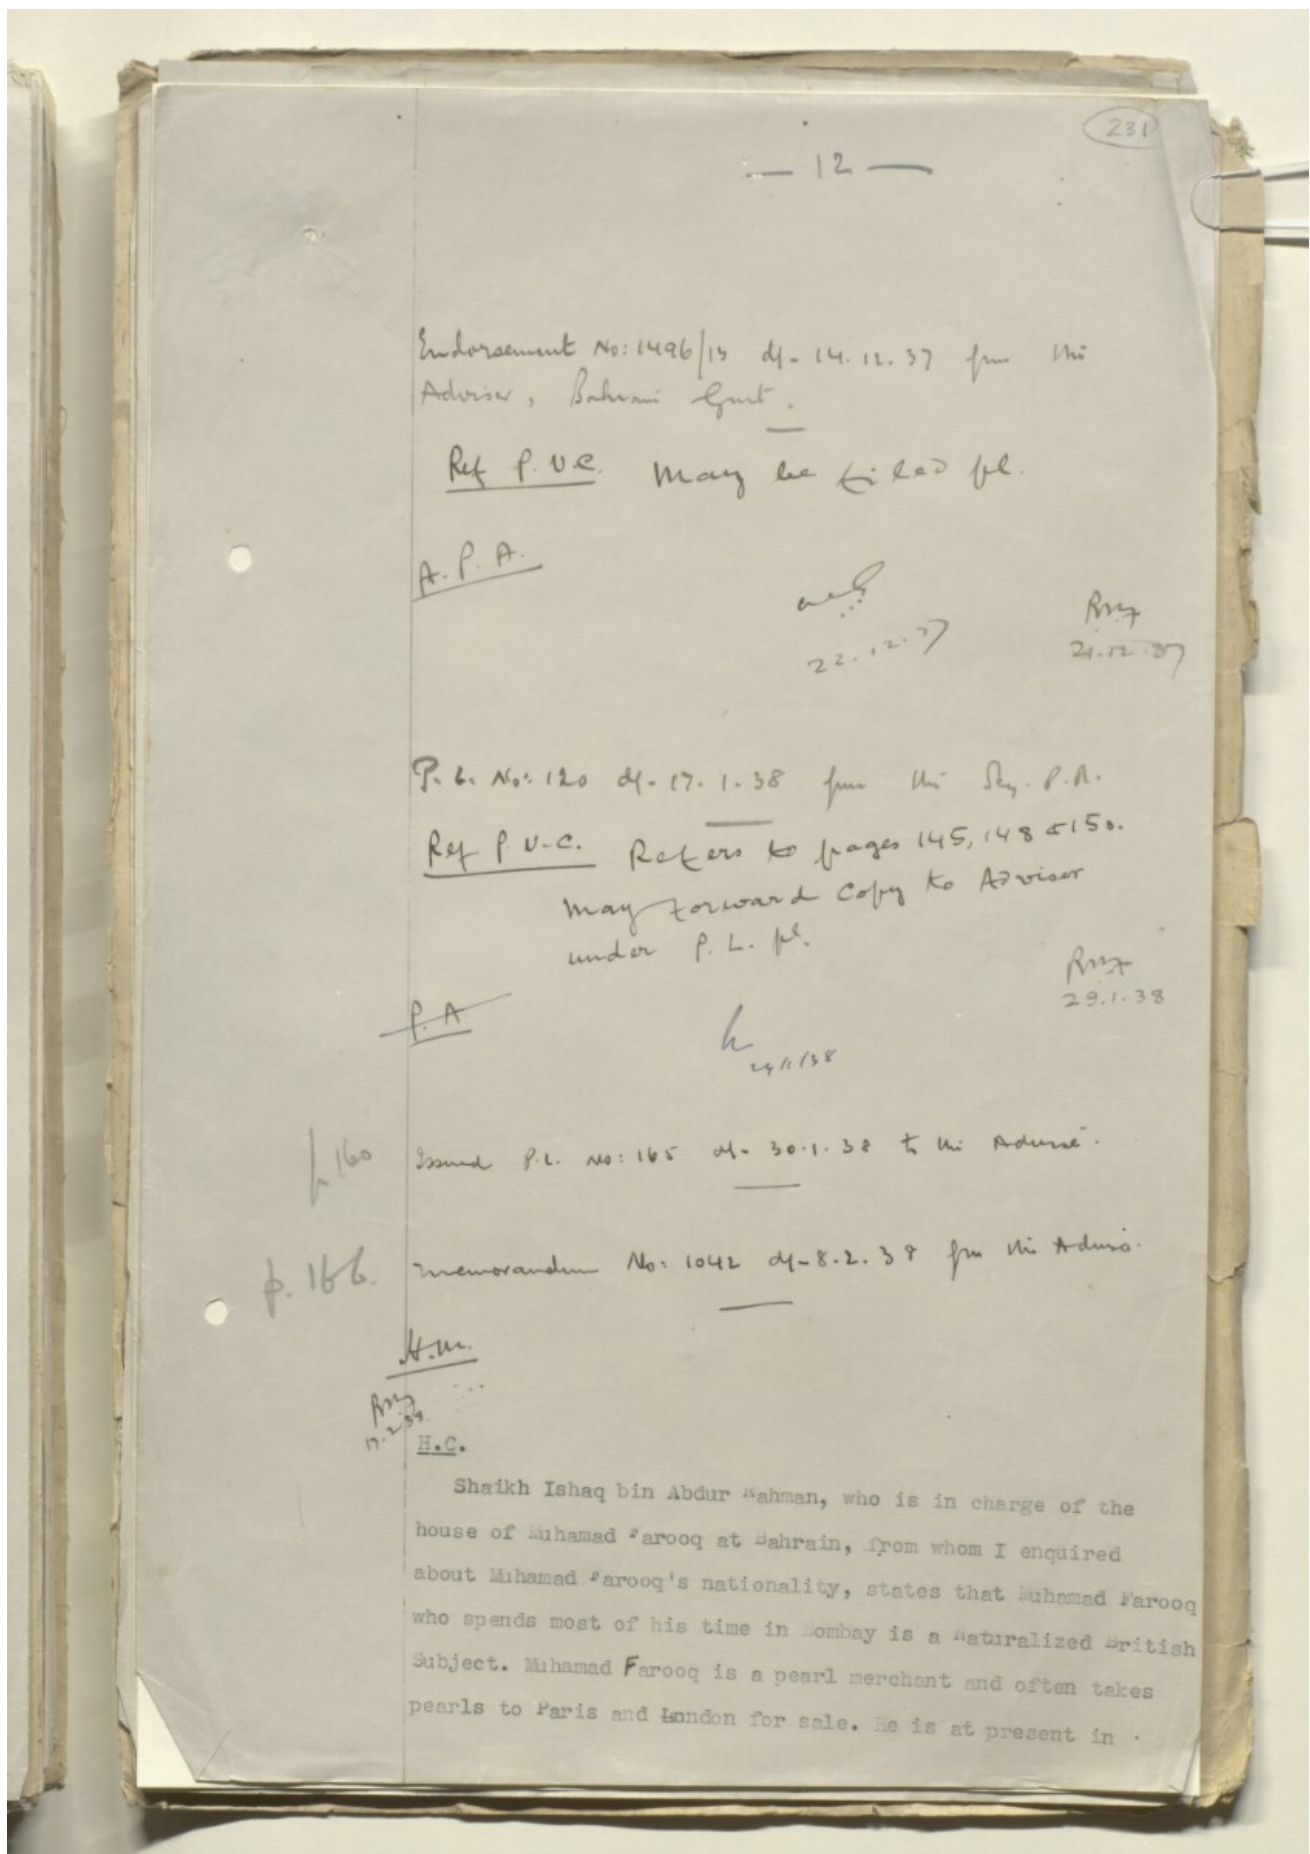 231
— 12 —
Endorsement No: 1496/13 d/- 14.12.37 from the
Adviser, Bahrain Govt.
Ref P.U.C. May be filed pl.
A.P.A.
22.12.37
21.12.37
P.L. No: 120 d/- 17.1.38 from the Secy. P.R.
Ref P.U.C. Refers to pages 145, 148 & 150.
May forward copy to Adviser
under P.L. pl.
29.1.38
P.A
29/1/38
p. 160
Issued P.L. No: 165 d/- 30.1.38 to the Adviser.
p. 166.
Memorandum No: 1042 d/- 8.2.38 from the Adviser.
H.M.
17.2.38
H.C.
Shaikh Ishaq bin Abdur Rahman, who is in charge of the
house of Muhamad Farooq at Bahrain, from whom I enquired
about Muhamad Farooq's nationality, states that Muhamad Farooq
who spends most of his time in Bombay is a Naturalized British
Subject. Muhamad Farooq is a pearl merchant and often takes
pearls to Paris and London for sale. He is at present in